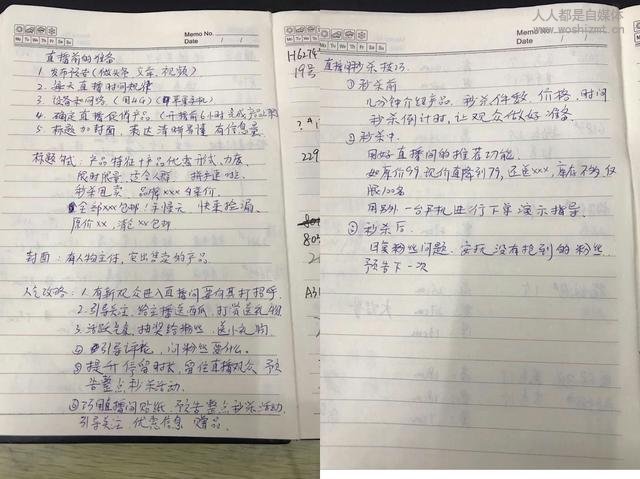 人人都是自媒体
www.woshizmt.cn
Memo No.
Mo Tu We Th Fr Sa Su
Date / /
直播前的准备
1 发布预告(微头条 文章、视频)
2. 每天直播时间规律
3. 设备和网络 (用4G) (苹果手机)
4. 确定直播促销产品 (开播前6小时完成产品上架)
5. 标题加封面,表达清晰易懂 有信息量
标题格式:产品特征+产品优惠形式、力度
限时限量,适合人群
秒杀甩卖、品牌xxx
全部xxx包邮!手慢无 快来捡漏
原价xx,清仓xx包邮
封面:有人物主体,突出售卖的产品
人气攻略:1. 有新观众进入直播间要向其打招呼
2. 引导关注、给主播送西瓜、打赏送礼物
3. 活跃气氛,抽奖给粉丝、送小礼物
① 引导评论,问粉丝要什么。
② 提升停留时长,留住直播观众、预
告整点秒杀活动.
③ 巧用直播间贴纸,预告整点秒杀活动.
引导关注、优惠信息 赠品.
H6274
19号
229
805
A31
Memo No.
Mo Tu We Th Fr Sa Su
Date / /
直播间秒杀技巧
① 秒杀前
几分钟介绍产品、秒杀件数、价格、时间
秒杀倒计时,让观众做好准备
② 秒杀中
用好直播间的推荐功能.
如有价99,现价直降到79,还送xxx,库存不多,仅
限100名
用另外一台手机进行下单演示指导.
③ 秒杀后
回复粉丝问题、安抚没有抢到的粉丝.
预告下一次